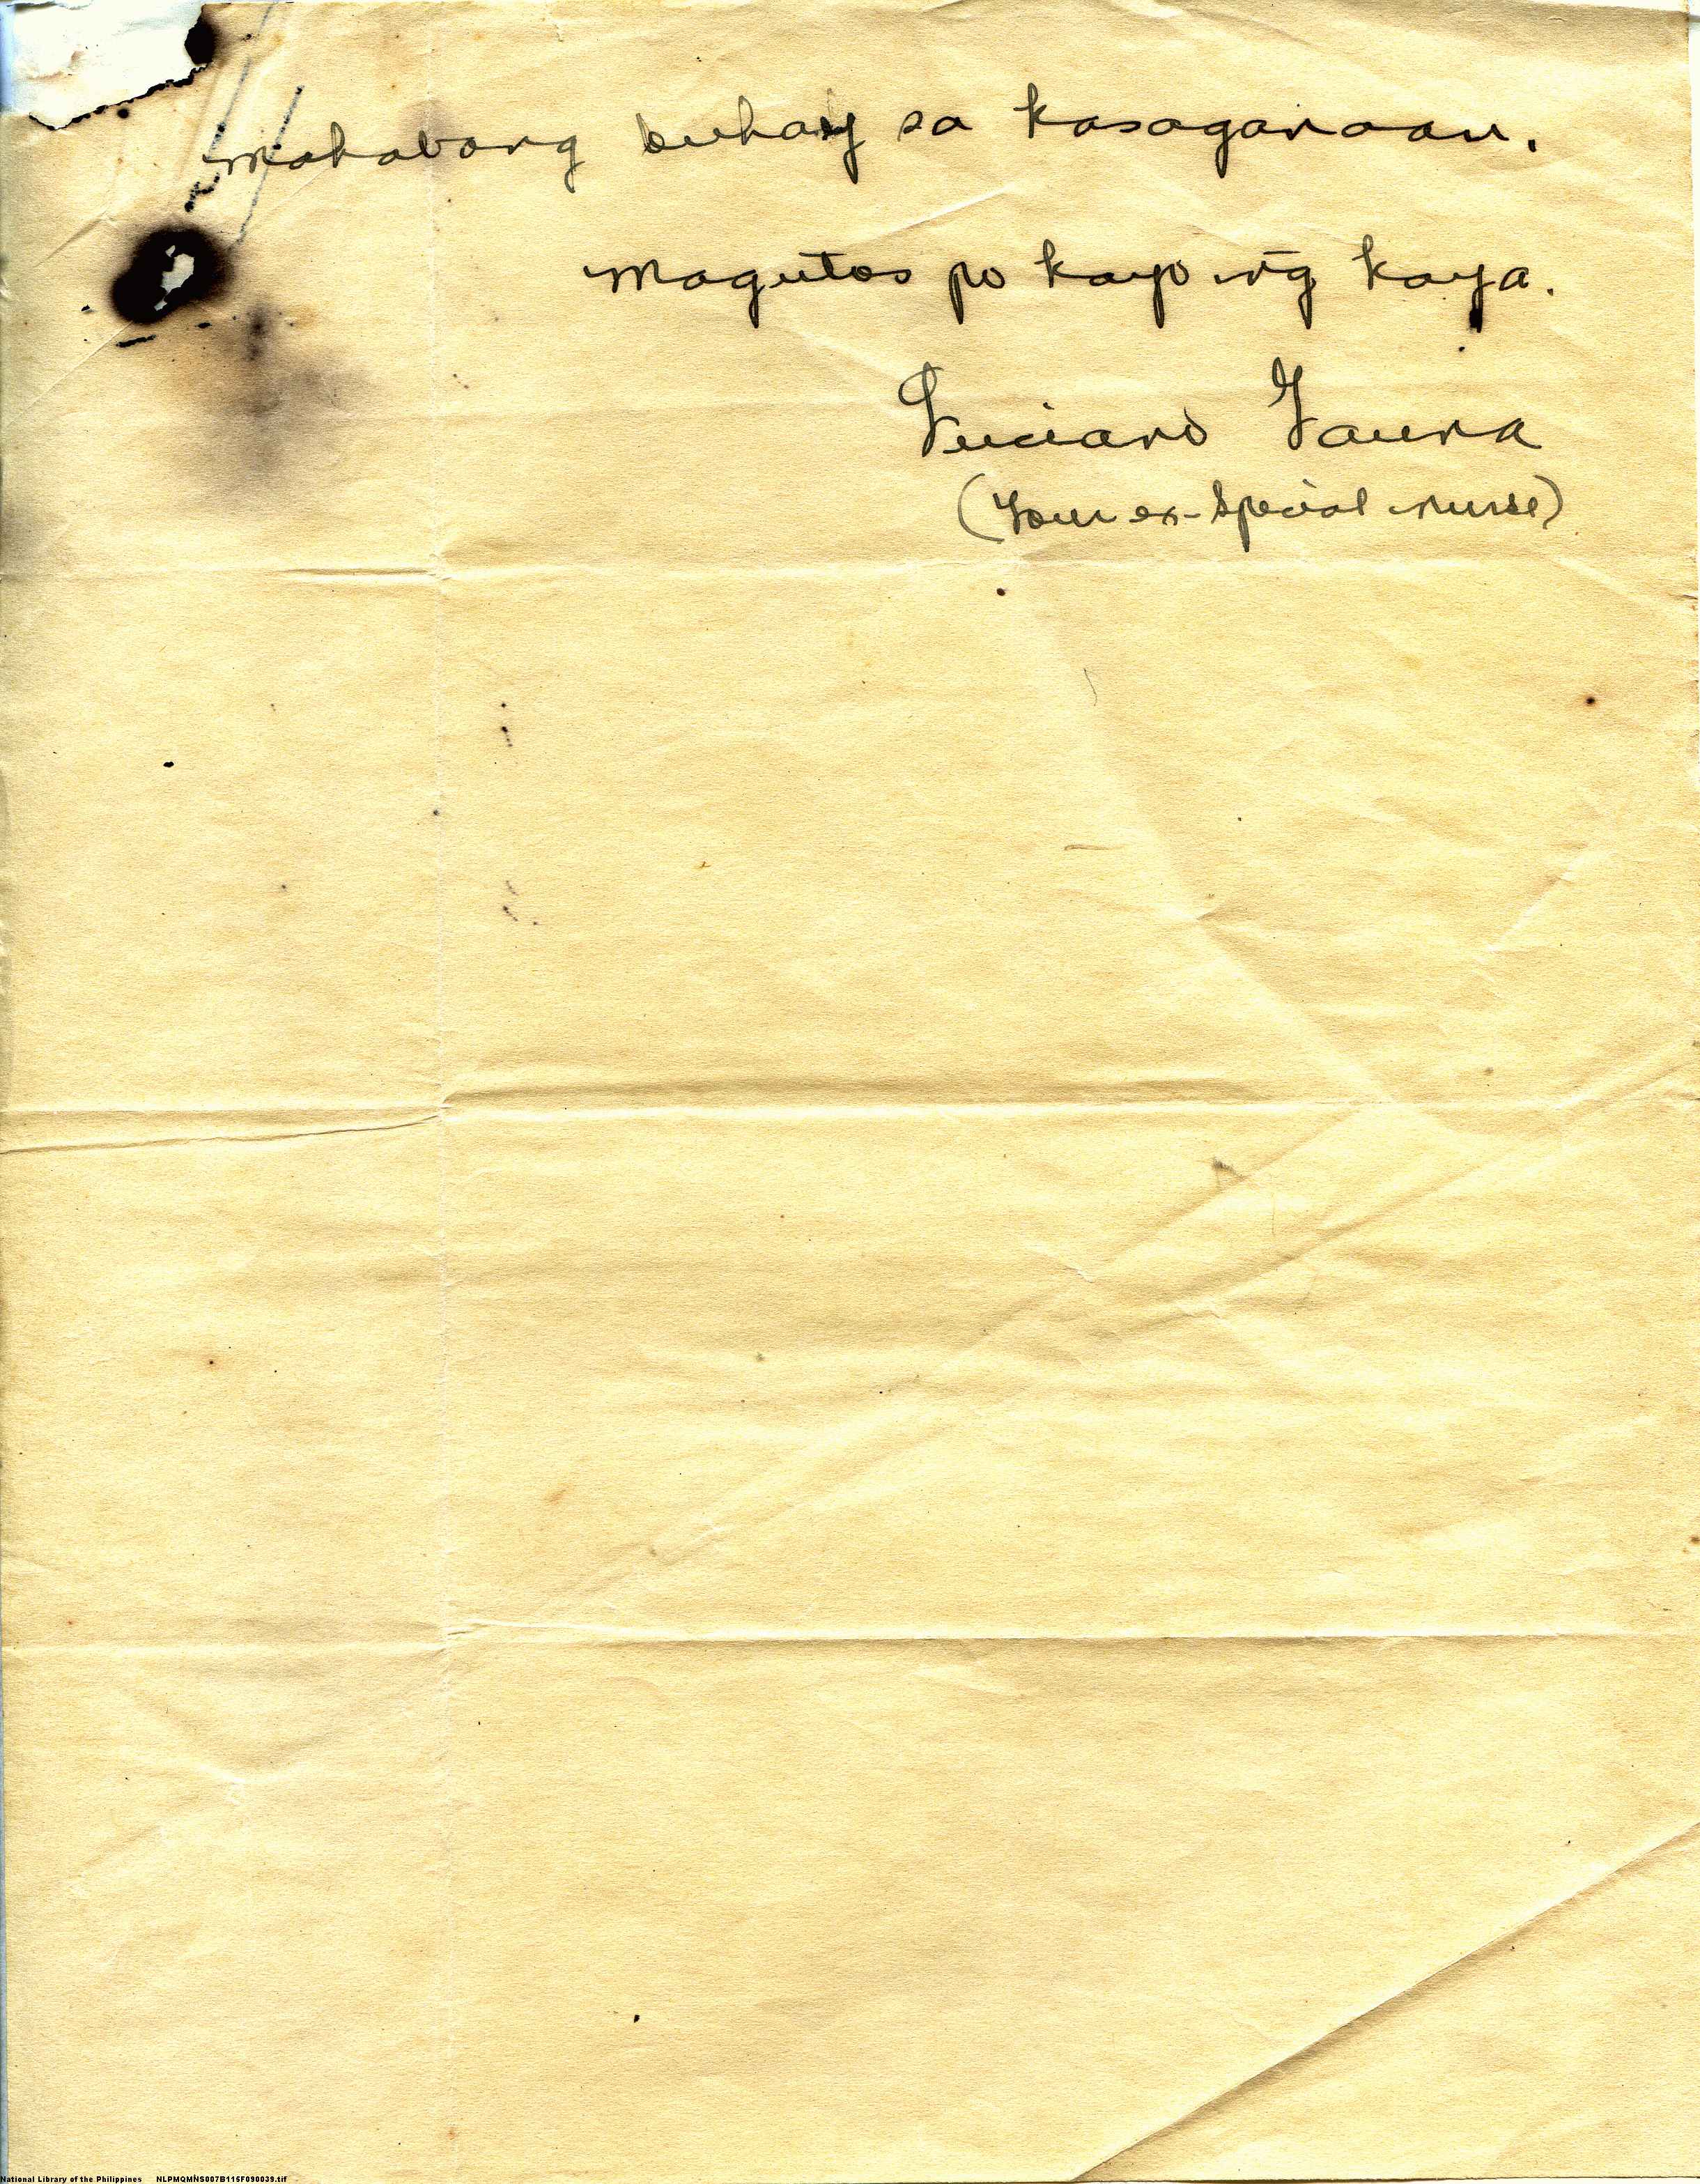 mahabang buhay sa kasaganaan.
Magutos po kayo ng̃ kaya.
Luciano Gauna
(Your ex-special nurse)
National Library of the Philippines NLPMQMNS007B115F090039.tif